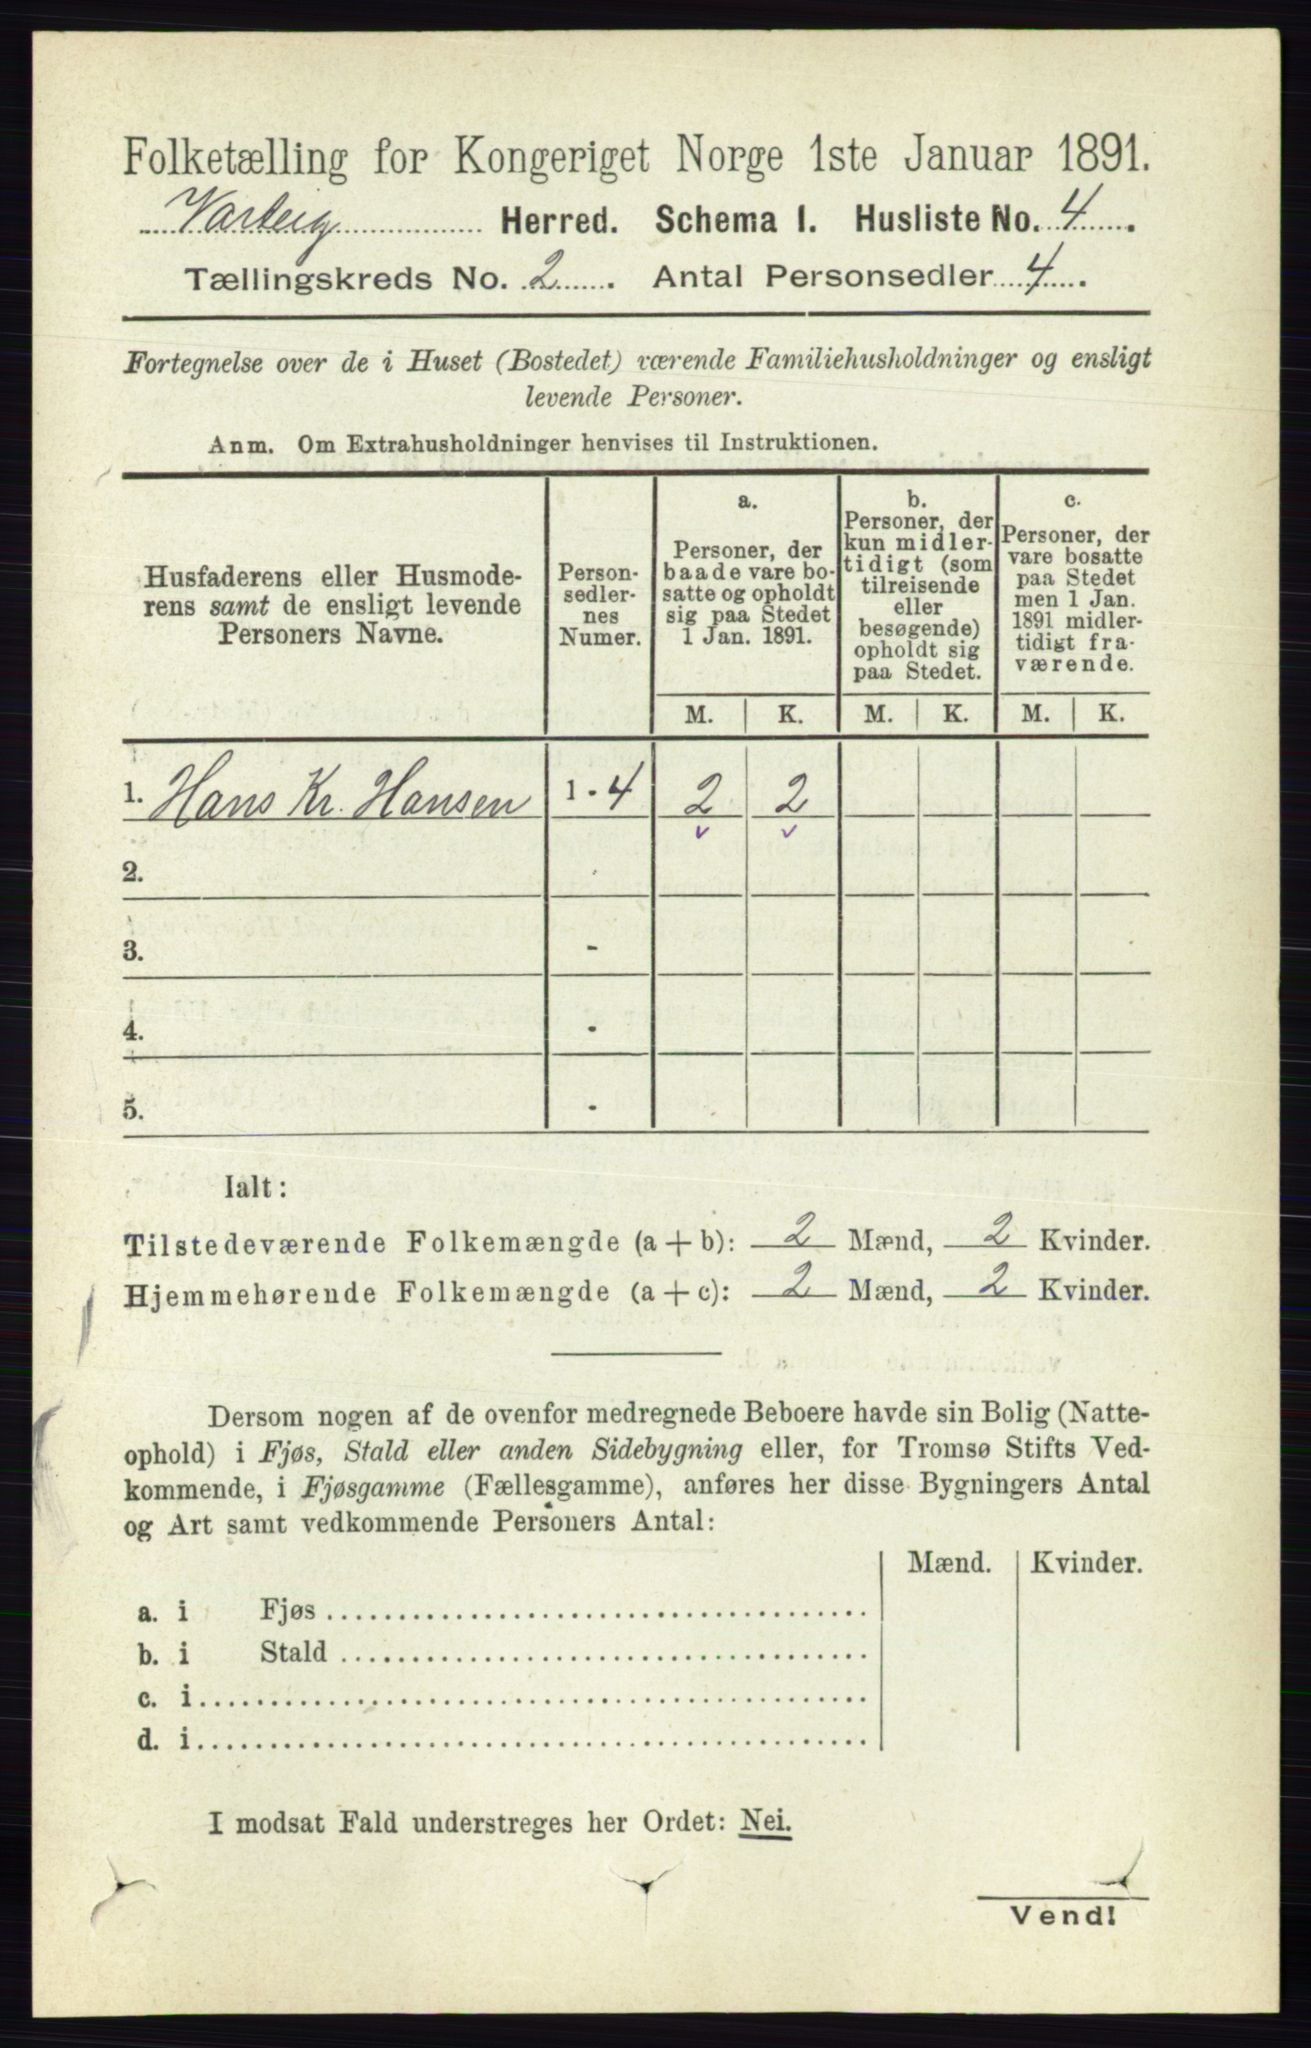 Folketælling for Kongeriget Norge 1ste Januar 1891.
Varteig Herred. Schema I. Husliste No. 4.
Tællingskreds No. 2. Antal Personsedler 4.
Fortegnelse over de i Huset (Bostedet) værende Familiehusholdninger og ensligt
levende Personer.
Anm. Om Extrahusholdninger henvises til Instruktionen.
Husfaderens eller Husmode-
rens samt de ensligt levende
Personers Navne.
Person-
sedler-
nes
Numer.
a.
Personer, der
baade vare bo-
satte og opholdt
sig paa Stedet
1 Jan. 1891.
b.
Personer, der
kun midler-
tidigt (som
tilreisende
eller
besøgende)
opholdt sig
paa Stedet.
c.
Personer, der
vare bosatte
paa Stedet
men 1 Jan.
1891 midler-
tidigt fra-
værende.
M. K. M. K. M. K.
1. Hans Kr. Hansen 1 - 4 2 2
2.
3. -
4. -
5. -
Ialt:
Tilstedeværende Folkemængde (a + b): 2 Mænd, 2 Kvinder.
Hjemmehørende Folkemængde (a + c): 2 Mænd, 2 Kvinder.
Dersom nogen af de ovenfor medregnede Beboere havde sin Bolig (Natte-
ophold) i Fjøs, Stald eller anden Sidebygning eller, for Tromsø Stifts Ved-
kommende, i Fjøsgamme (Fællesgamme), anføres her disse Bygningers Antal
og Art samt vedkommende Personers Antal:
Mænd. Kvinder.
a. i Fjøs
b. i Stald
c. i
d. i
I modsat Fald understreges her Ordet: Nei.
Vend!